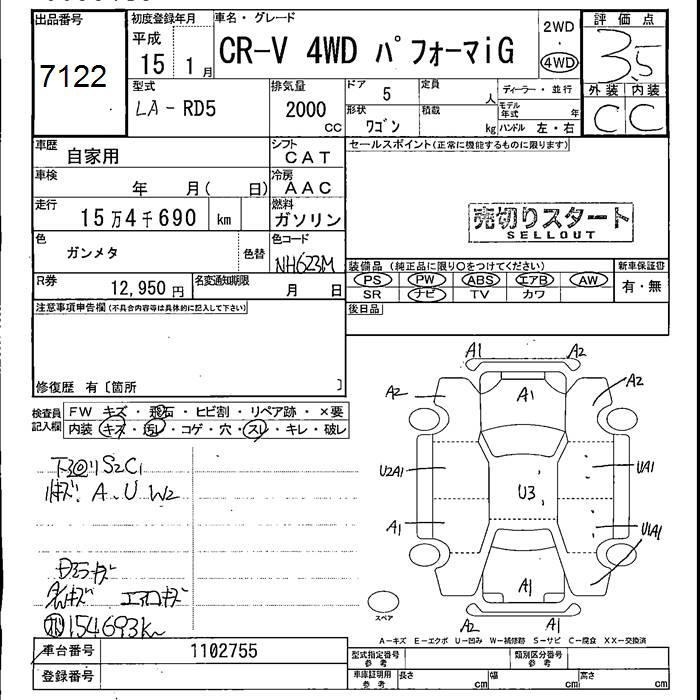 出品番号
7122
初度登録年月
平成
15 1月
車名・グレード
CR-V 4WD パフォーマiG
2WD
・
4WD
評価点
3.5
外装 内装
C C
型式
LA-RD5
排気量
2000
cc
ドア
5
定員
人
形状
ワゴン
積載
kg
ディーラー・並行
モデル年式 年
ハンドル 左・右
車歴
自家用
シフト
CAT
車検
年 月( 日)
冷房
AAC
走行
15万4千690 km
燃料
ガソリン
色
ガンメタ
色替
色コード
NH623M
R券
12,950円
名変通知期限
月 日
セールスポイント(正常に機能するものに限ります)
売切りスタート
SELLOUT
装備品 (純正品に限り○をつけてください)
新車保証書
PS PW ABS エアB AW
SR ナビ TV カワ
有・無
後日品
注意事項申告欄(不具合内容等は具体的に記入して下さい)
修復歴 有〔箇所 〕
検査員記入欄
FW キズ・飛石・ヒビ割・リペア跡・×要
内装 キズ・汚レ・コゲ・穴・スレ・キレ・破レ
下回りS2C1
小キズ. A.U W2
キズ
エアロキズ
154693km
A1 A2
A2 A1 A2
U2A1 U3 UA1
A1 U1A1
A1
A2 A1
スペア
A-キズ E-エクボ U-凹み W-補修跡 S-サビ C-腐食 XX-交換済
車台番号
1102755
登録番号
型式指定番号
参考
類別区分番号
参考
車庫証明用
参考
長さ cm
幅 cm
高さ cm